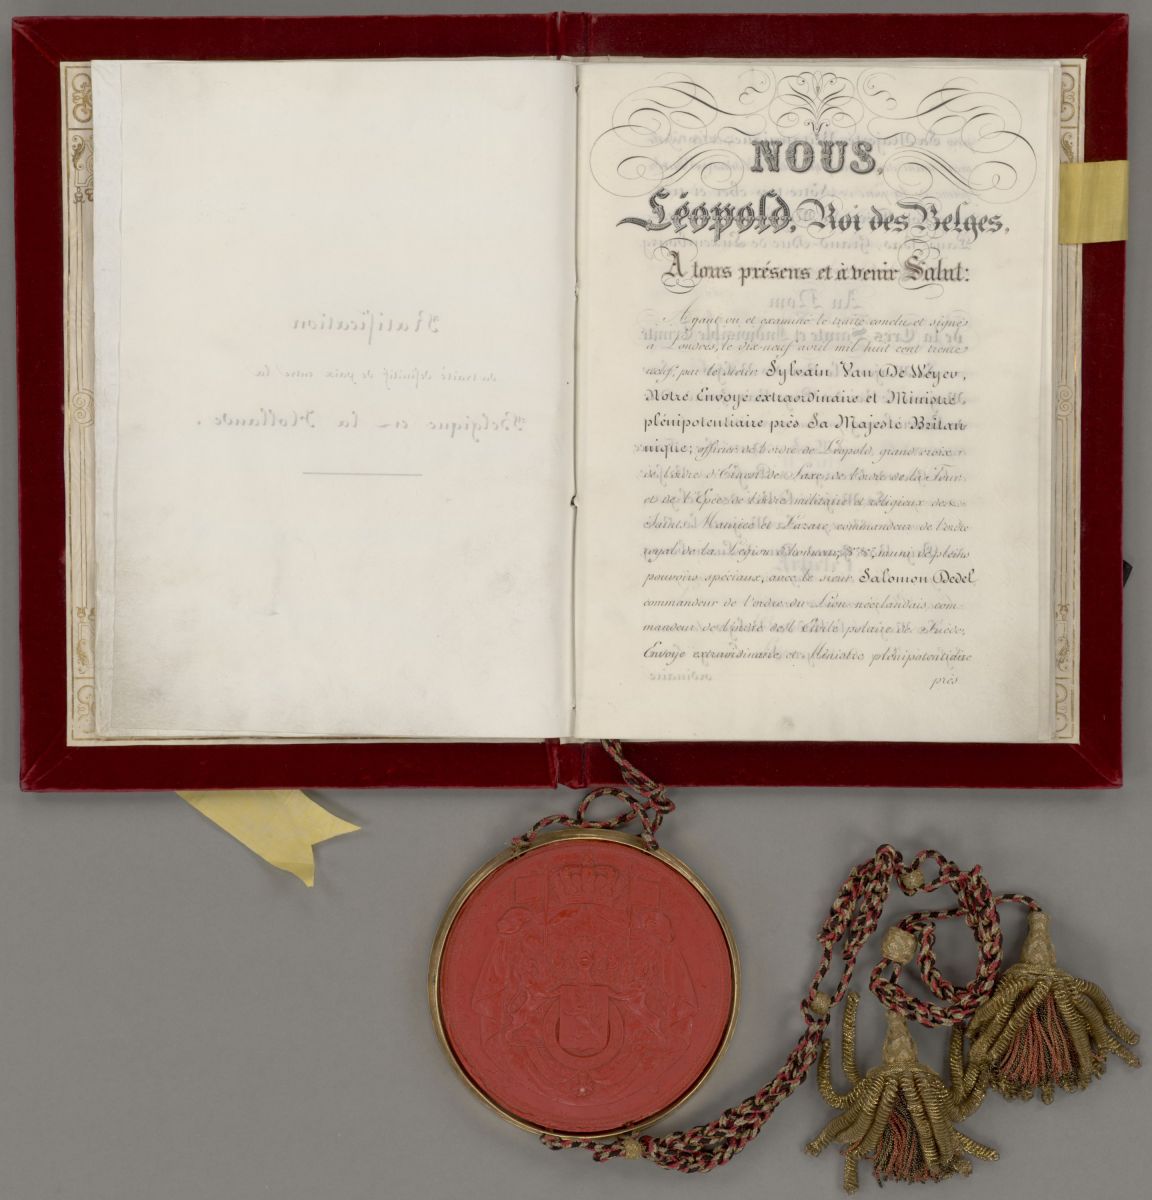 Ratification
du traité définitif de paix entre la
Belgique et la Hollande.
NOUS,
Léopold, Roi des Belges,
A tous présens et à venir Salut:
Ayant vu et examiné le traité conclu et signé
à Londres, le dix-neuf avril mil huit cent trente
neuf, par le sieur Sylvain Van De Weyer,
Notre Envoyé extraordinaire et Ministre
plénipotentiaire près Sa Majesté Britan
nique; officier de l'ordre de Léopold, grand croix
de l'ordre d'Ernest de Saxe, de l'ordre de la Tour
et de l'Epée, de l'ordre militaire et religieux des
Saints Maurice et Lazare, commandeur de l'ordre
royal de la Légion d'honneur, muni de pleins
pouvoirs spéciaux, avec le sieur Salomon Dedel,
commandeur de l'ordre du Lion néerlandais, com-
mandeur de l'ordre de l'Etoile polaire de Suède,
Envoyé extraordinaire et Ministre plénipotentiaire
près